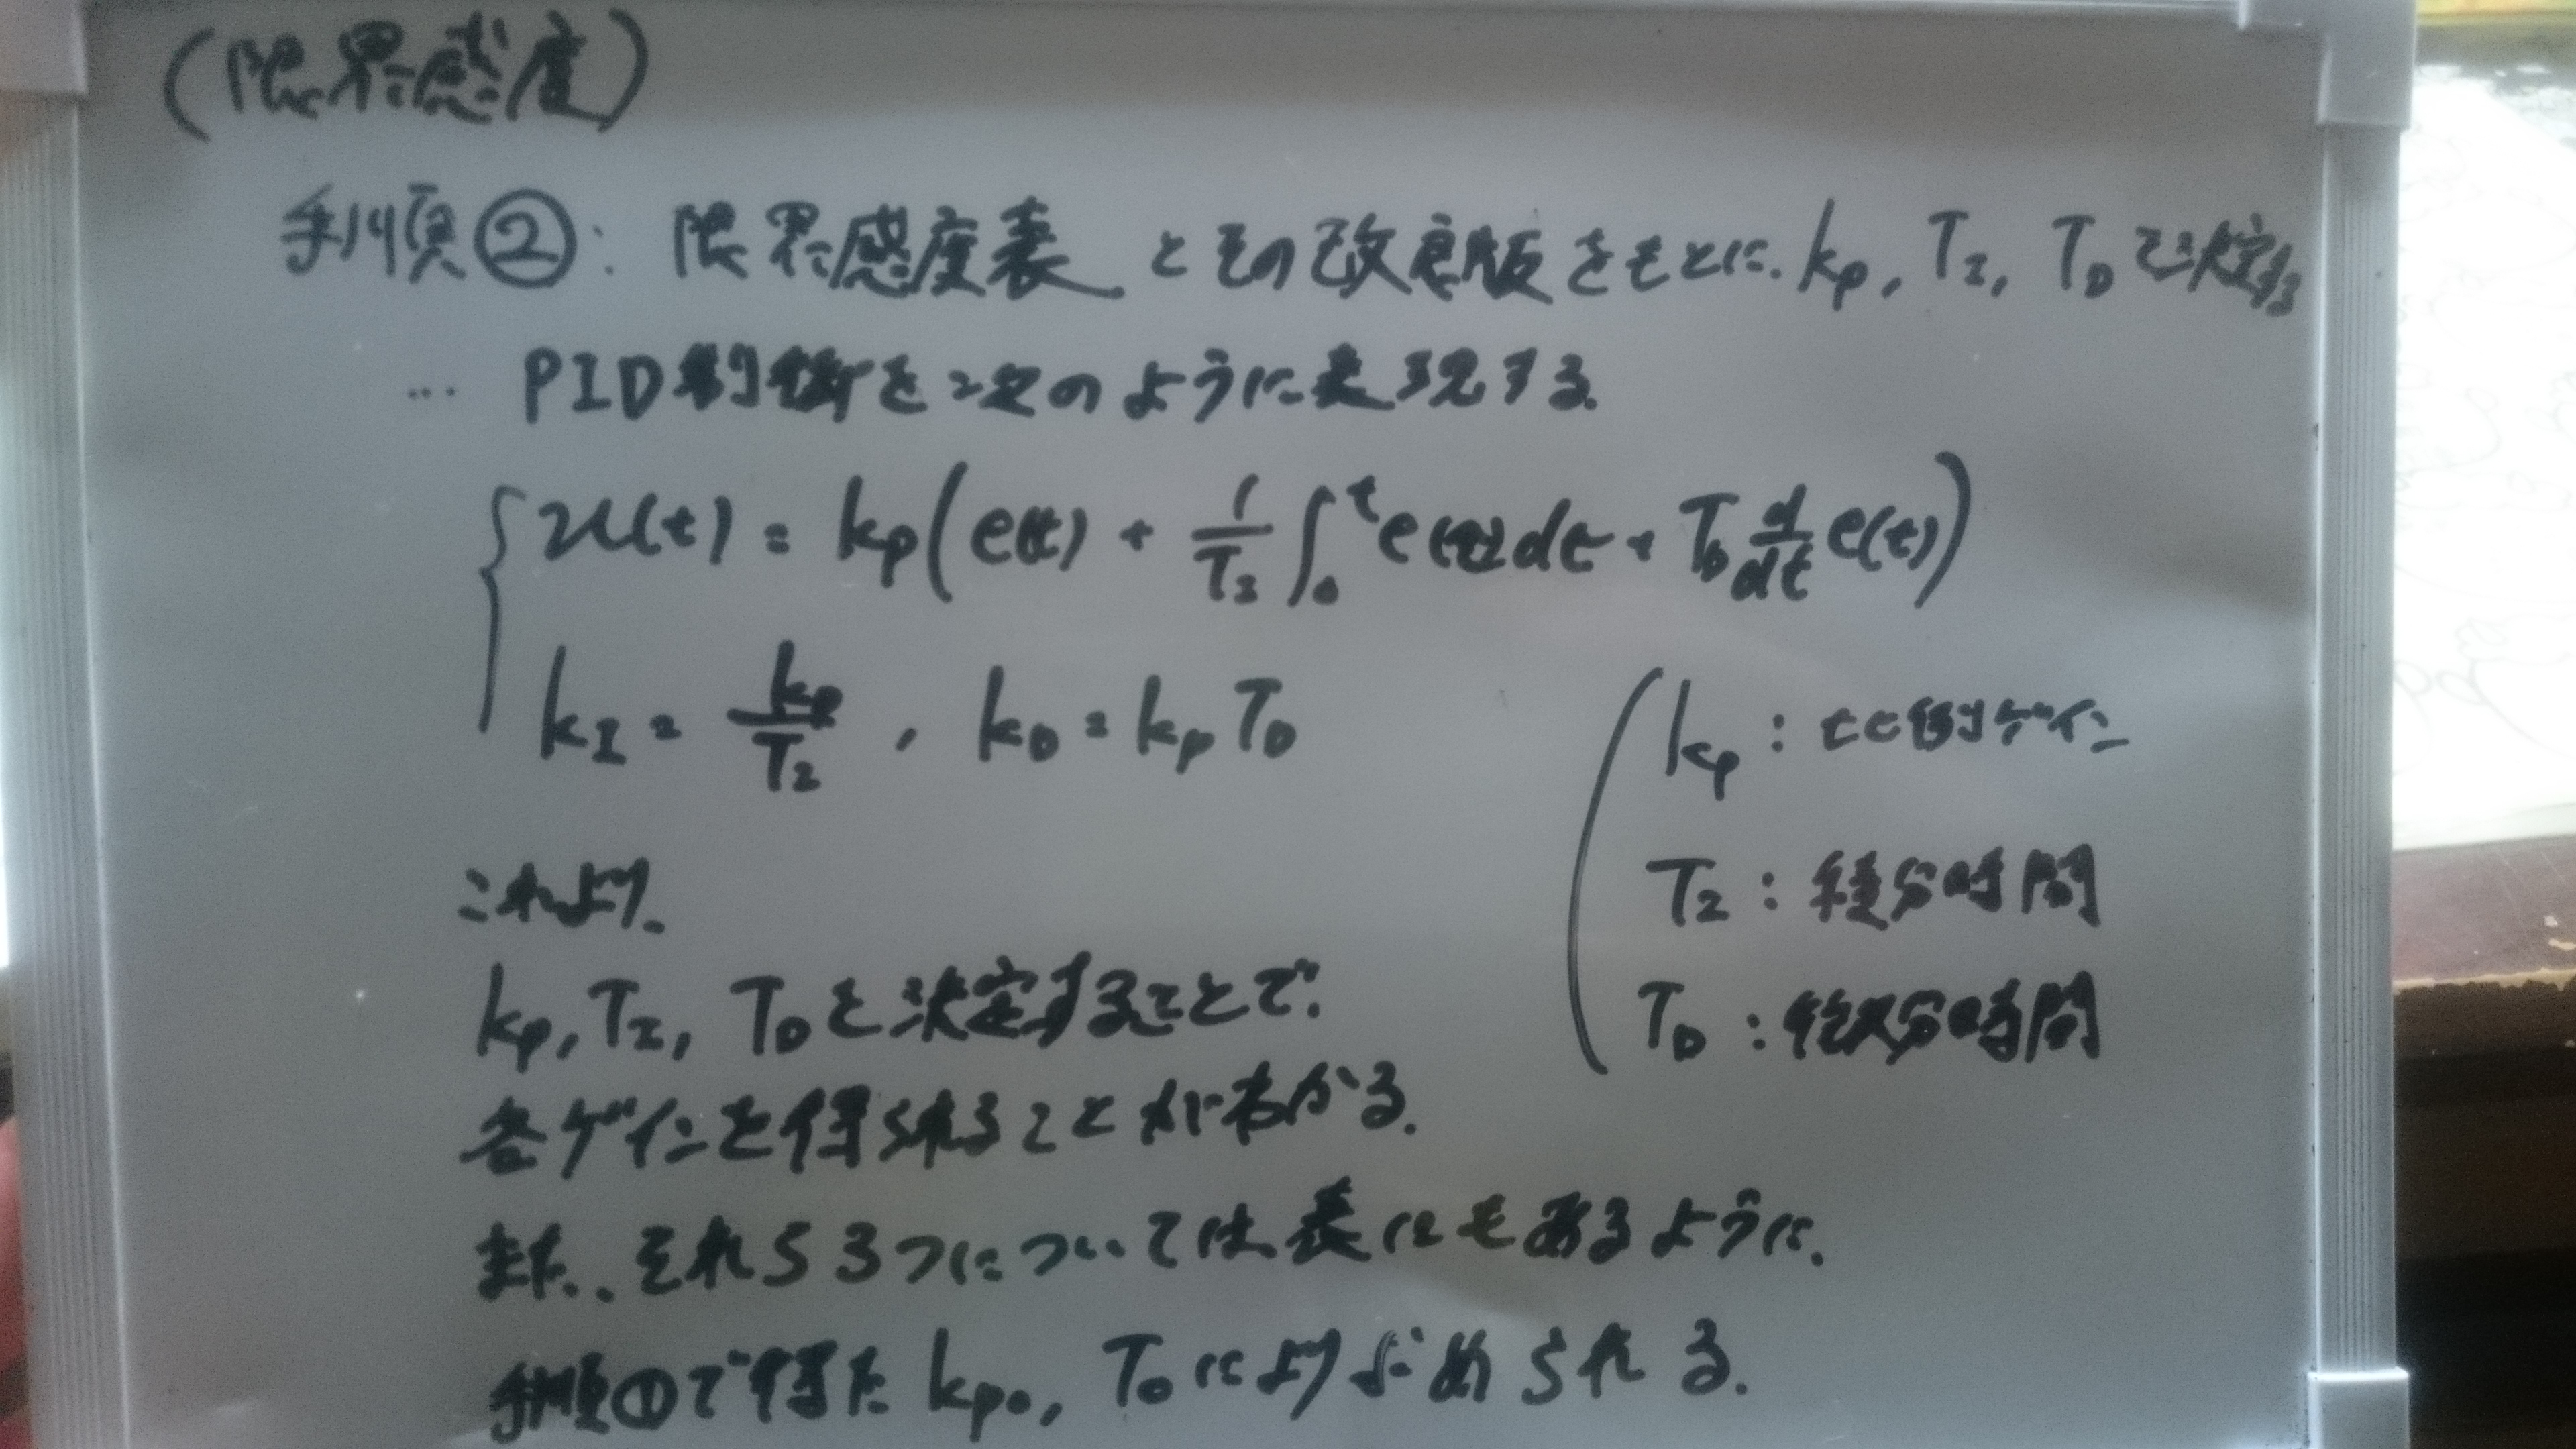 (限界感度)
手順②: 限界感度表とその改良版をもとに、kp, TI, TDを決定する
… PID制御を次のように表現する。
u(t) = kp(e(t) + 1/TI ∫0^t e(τ)dτ + TD d/dt e(t))
kI = kp/TI , kD = kp TD
kp : 比例ゲイン
TI : 積分時間
TD : 微分時間
これより、
kp, TI, TDを決定することで、
各ゲインを得られることがわかる。
また、それら3つについては表にもあるように、
手順①で得た kp0, T0 により求められる。